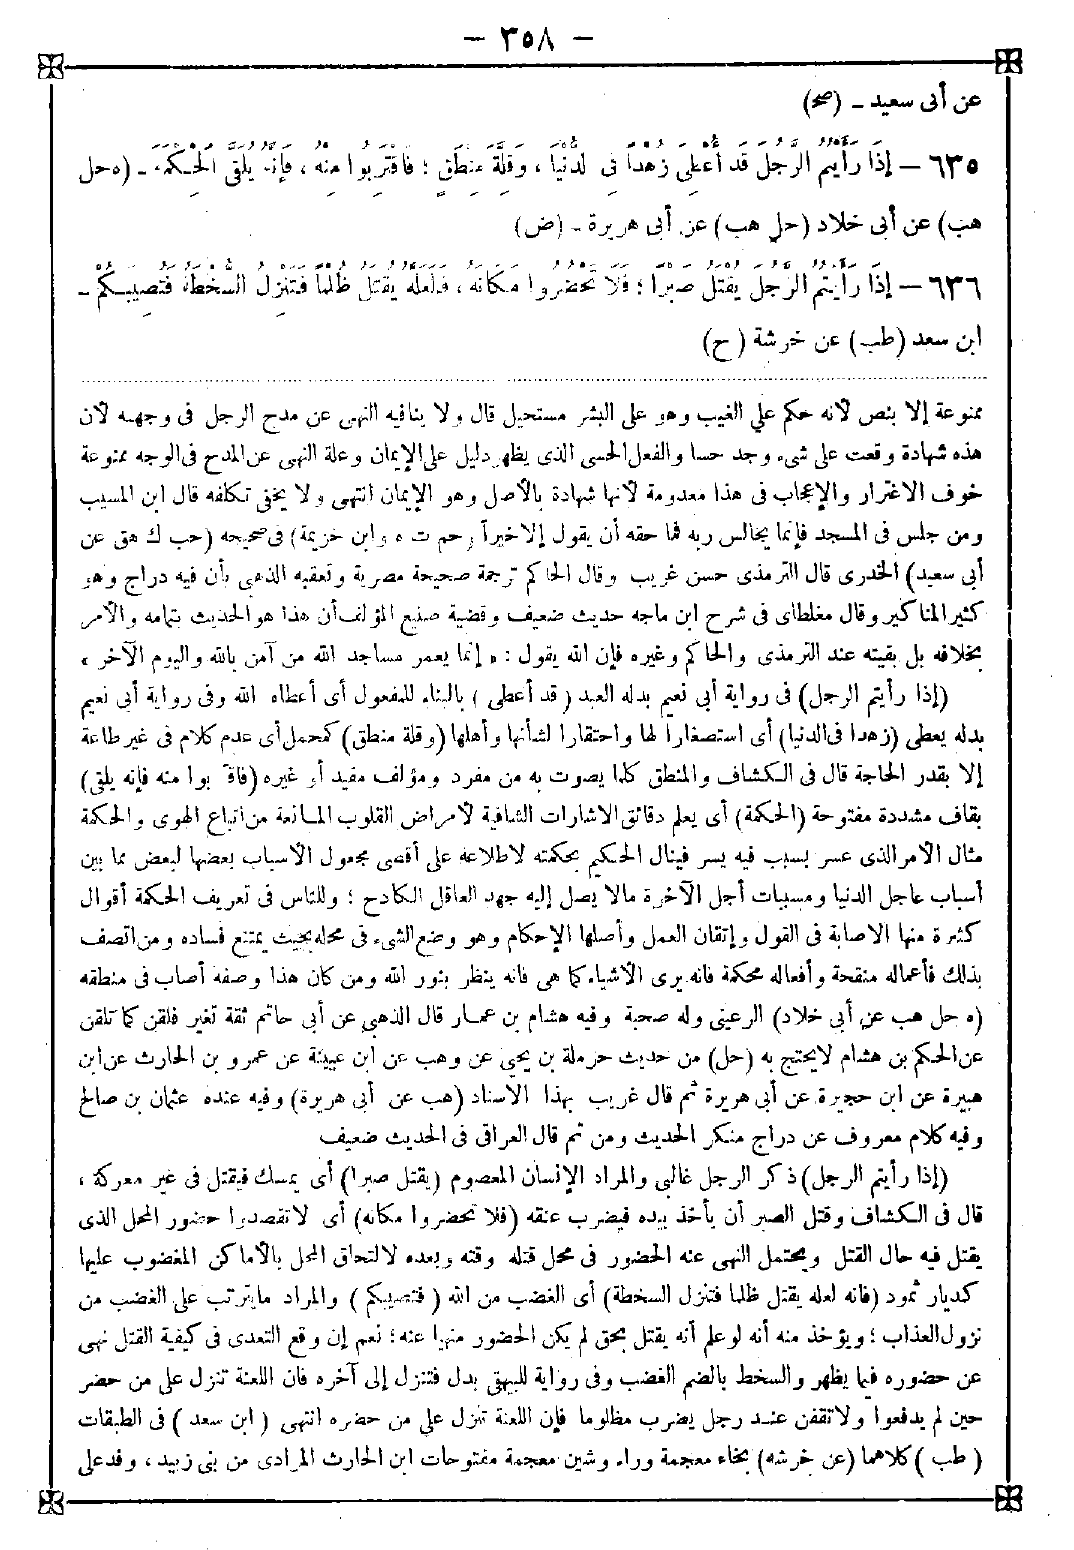 - ٣٥٨ -
عن أبى سعيد - (صح)
٦٣٥ - إِذَا رَأَيْتُمُ الرَّجُلَ قَدْ أُعْطِىَ زُهْدًا فِى الدُّنْيَا، وَقِلَّةَ مَنْطِقٍ؛ فَاقْتَرِبُوا مِنْهُ، فَإِنَّهُ يُلَقَّى الْحِكْمَةَ - (ه حل
هب) عن أبى خلاد (حل هب) عن أبى هريرة - (ض)
٦٣٦ - إِذَا رَأَيْتُمُ الرَّجُلَ يُقْتَلُ صَبْرًا؛ فَلَا تَحْضُرُوا مَكَانَهُ، فَلَعَلَّهُ يُقْتَلُ ظُلْمًا فَتَنْزِلُ السُّخْطَةُ فَتُصِيبَكُمْ -
ابن سعد (طب) عن خرشة (ح)
ممنوعة إلا بنص لأنه حكم على الغيب وهو على البشر مستحيل قال ولا ينافيه النهى عن مدح الرجل فى وجهه لأن
هذه شهادة وقعت على شىء وجد حسا والفعل الحسى الذى يظهر دليل على الإيمان وعلة النهى عن المدح فى الوجه ممنوعة
خوف الاغترار والإعجاب فى هذا معدومة لأنها شهادة بالأصل وهو الإيمان انتهى ولا يخفى تكلفه قال ابن المسيب
ومن جلس فى المسجد فإنما يجالس ربه فما حقه أن يقول إلا خيراً (حم ت ه وابن خزيمة) فى صحيحه (حب ك هق عن
أبى سعيد) الخدرى قال الترمذى حسن غريب وقال الحاكم ترجمة صحيحة مصرية وتعقبه الذهبى بأن فيه دراج وهو
كثير المناكير وقال مغلطاى فى شرح ابن ماجه حديث ضعيف وقضية صنيع المؤلف أن هذا هو الحديث بتمامه والأمر
بخلافه بل بقيته عند الترمذى والحاكم وغيره فإن الله يقول : « إنما يعمر مساجد الله من آمن بالله واليوم الآخر »
(إذا رأيتم الرجل) فى رواية أبى نعيم بدله العبد (قد أعطى) بالبناء للمفعول أى أعطاه الله وفى رواية أبى نعيم
بدله يعطى (زهدا فى الدنيا) أى استصغاراً لها واحتقارا لشأنها وأهلها (وقلة منطق) كمحمل أى عدم كلام فى غير طاعة
إلا بقدر الحاجة قال فى الكشاف والمنطق كلما يصوت به من مفرد ومؤلف مفيد أو غيره (فاقتربوا منه فإنه يلقى)
بقاف مشددة مفتوحة (الحكمة) أى يعلم دقائق الاشارات الشافية لأمراض القلوب المانعة من اتباع الهوى والحكمة
مثال الأمر الذى عسر بسبب فيه يسر فينال الحكيم بحكمته لاطلاعه على أقصى مجعول الأسباب بعضها لبعض مما بين
أسباب عاجل الدنيا ومسببات أجل الآخرة مالا يصل إليه جهد العاقل الكادح ؛ وللناس فى تعريف الحكمة أقوال
كثيرة منها الاصابة فى القول وإتقان العمل وأصلها الإحكام وهو وضع الشىء فى محله بحيث يمتنع فساده ومن اتصف
بذلك فأعماله منقحة وأفعاله محكمة فانه يرى الأشياء كما هى فانه ينظر بنور الله ومن كان هذا وصفه أصاب فى منطقه
(ه حل هب عن أبى خلاد) الرعينى وله صحبة وفيه هشام بن عمار قال الذهبى عن أبى حاتم ثقة تغير فلقن كما تلقن
عن الحكم بن هشام لا يحتج به (حل) من حديث حرملة بن يحيى عن وهب عن ابن عيينة عن عمرو بن الحارث عن ابن
هبيرة عن ابن حجيرة عن أبى هريرة ثم قال غريب بهذا الاسناد (هب عن أبى هريرة) وفيه عنده عثمان بن صالح
وفيه كلام معروف عن دراج منكر الحديث ومن ثم قال العراقى فى الحديث ضعيف
(إذا رأيتم الرجل) ذكر الرجل غالبى والمراد الإنسان المعصوم (يقتل صبرا) أى يمسك فيقتل فى غير معركة ،
قال فى الكشاف وقتل الصبر أن يأخذ بيده فيضرب عنقه (فلا تحضروا مكانه) أى لا تقصدوا حضور المحل الذى
يقتل فيه حال القتل ويحتمل النهى عنه الحضور فى محل قتله وقته وبعده لالتحاق المحل بالأماكن المغضوب عليها
كديار ثمود (فانه لعله يقتل ظلما فتنزل السخطة) أى الغضب من الله (فتصيبكم) والمراد مايترتب على الغضب من
نزول العذاب ؛ ويؤخذ منه أنه لو علم أنه يقتل بحق لم يكن الحضور منهيا عنه ؛ نعم إن وقع التعدى فى كيفية القتل نهى
عن حضوره فيما يظهر والسخط بالضم الغضب وفى رواية للبيهقى بدل فتنزل إلى آخره فان اللعنة تنزل على من حضر
حين لم يدفعوا ولا تقفن عند رجل يضرب مظلوما فإن اللعنة تنزل على من حضره انتهى (ابن سعد) فى الطبقات
(طب) كلاهما (عن خرشه) بخاء معجمة وراء وشين معجمة مفتوحات ابن الحارث المرادى من بنى زبيد ، وفد على